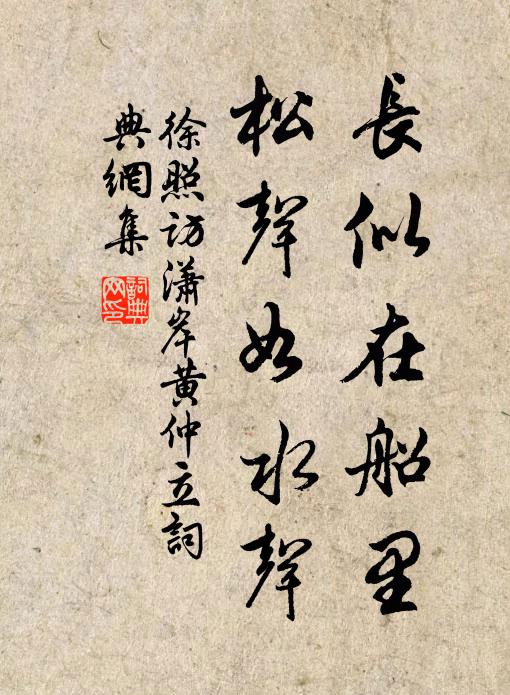 長似在船里
松聲如水聲
徐照訪瀟岸黃仲立詞
典網集
詞典
网印